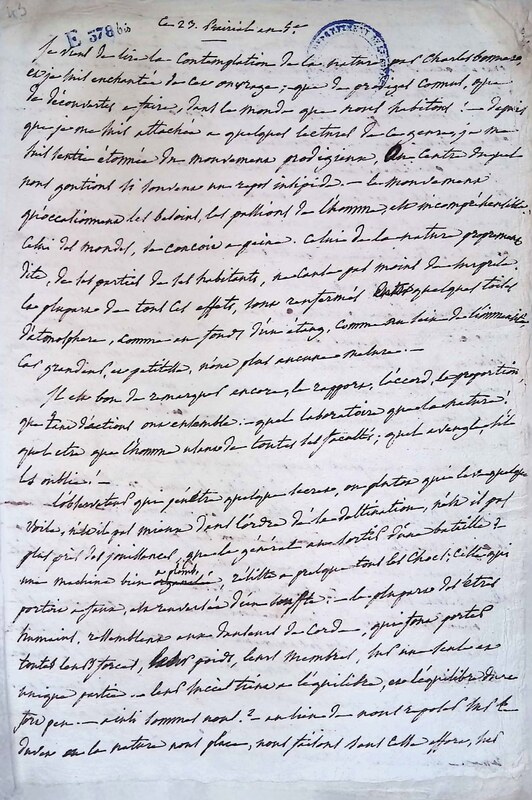 43
E 378 bis
Ce 23. Prairial an 5e
Je viens de lire la Contemplation de la nature, par Charles Bonnet,
et je suis enchantée de cet ouvrage; que de prodiges connus, que
de découvertes a faire, dans le monde que nous habitons! - depuis
que je me suis attachée a quelques lectures de ce genre, je me
suis sentie étonnée du mouvement prodigieux, au centre duquel
nous goutions si souvent un repos insipide. - le mouvement
qu'occasionnent les besoins, les passions de l'homme, est incompréhensible
Celui des mondes, se conçoit a peine. Celui de la nature proprement
dite, de ses parties de ses habitants, ne cause pas moins de surprise.
la plupart de tous ces effets, sont renfermés entre quelques toises
d'atmosphere, comme au fond d'un etang, comme au sein de l'immensité
Les grandeurs, et petitesse, n'ont plus aucune mesure. -
Il est bon de remarquer encore, le rapport, l'accord, la proportion
que tant d'actions ont ensemble. - quel laboratoire que la nature!
quel etre que l'homme usant de toutes ses facultés; quel aveugle, s'il
les oublie! -
L'observateur que pénétre quelque secret, ou plutot que leve quelque
voile, n'est-il pas mieux dans l'ordre de sa destination, n'est il pas
plus près des jouissances, que le général au sortir d'une bataille?
une machine bien a plomb, résiste a presque tous les chocs; celle qui
porte a faux, est renversée d'un souffle: - la plupart des etres
humains, ressemblent aux danseurs de Corde, que font porter
toutes leurs forces, leurs poids, leurs membres, sur un seul et
unique partie. - leur succès tient a l'équilibre, et l'équilibre dure
fort peu. - ainsi sommes nous? - au lieu de nous reposer sur le
ou la nature nous place, nous faisons sans cesse effort, sur